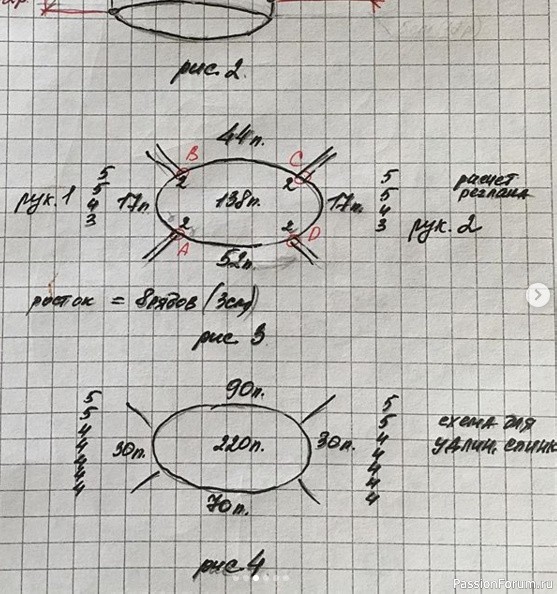 2р.
рис. 2.
44п.
B
C
2
2
5
5
4
3
5
5
4
3
рук. 1
17п.
138п.
17п.
рук. 2
расчет
реглана
2
2
A
D
52п.
росток = 8рядов (3см)
рис 3
90п.
5
5
4
4
4
4
4
5
5
4
4
4
4
4
30п.
220п.
30п.
схема для
удлин. спинк
70п.
рис 4
PassionForum.ru